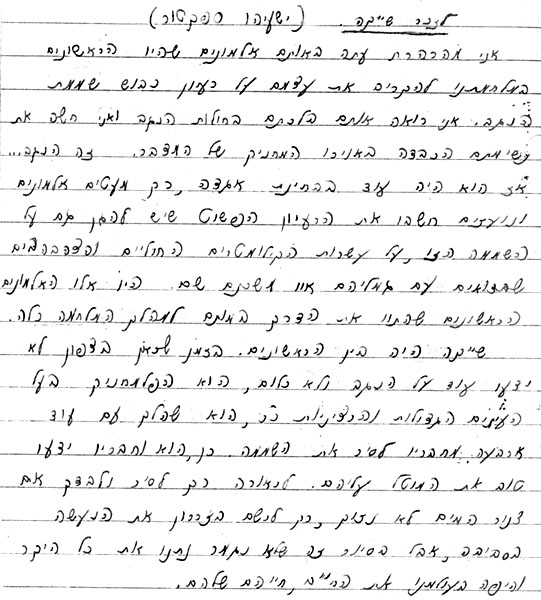 לזכר שייקה. (ישעיהו ספקטור)
אני מהרהרת עתה באותם אלמונים שהיו הראשונים
במלחמתנו להקריב את עצמם על רעיון כבוש שממת
הנגב. אני רואה אותם בלכתם בחולות הנגב ואני חשה את
נשימתם הכבדה באוירו המחניק של המדבר. זה הנגב...
אז הוא היה עוד בבחינת אגדה, רק מעטים אלמונים
ונועזים חשבו את הרעיון הפשוט שיש להגן גם על
השממה הזו, על עשרות הקילומטרים החוליים והצהבהבים
שמוצאים עם גמליהם את משכנם שם. היו אלו האלמונים
הראשונים שהתוו את הדרך במותם למהלך המלחמה כלה.
שייקה היה בין הראשונים. בזמן שכאן בצפון לא
ידעו עוד על הנגב ולא כלום, הוא הפלמחניק בעל
העינים הגדולות והרציניות כ"כ, הוא שהלך עם עוד
ארבעה מחבריו לסיר את השממה. כן, הוא וחבריו ידעו
טוב את המוטל עליהם. לכאורה רק לסיר ולבדק אם
צנור המים לא נזוק, רק לרשם בזכרון את הנעשה
בסביבה, אבל בסיור זה שלא נגמר נתנו את כל היקר
והיפה בעולמנו את החיים, חייהם שלהם.